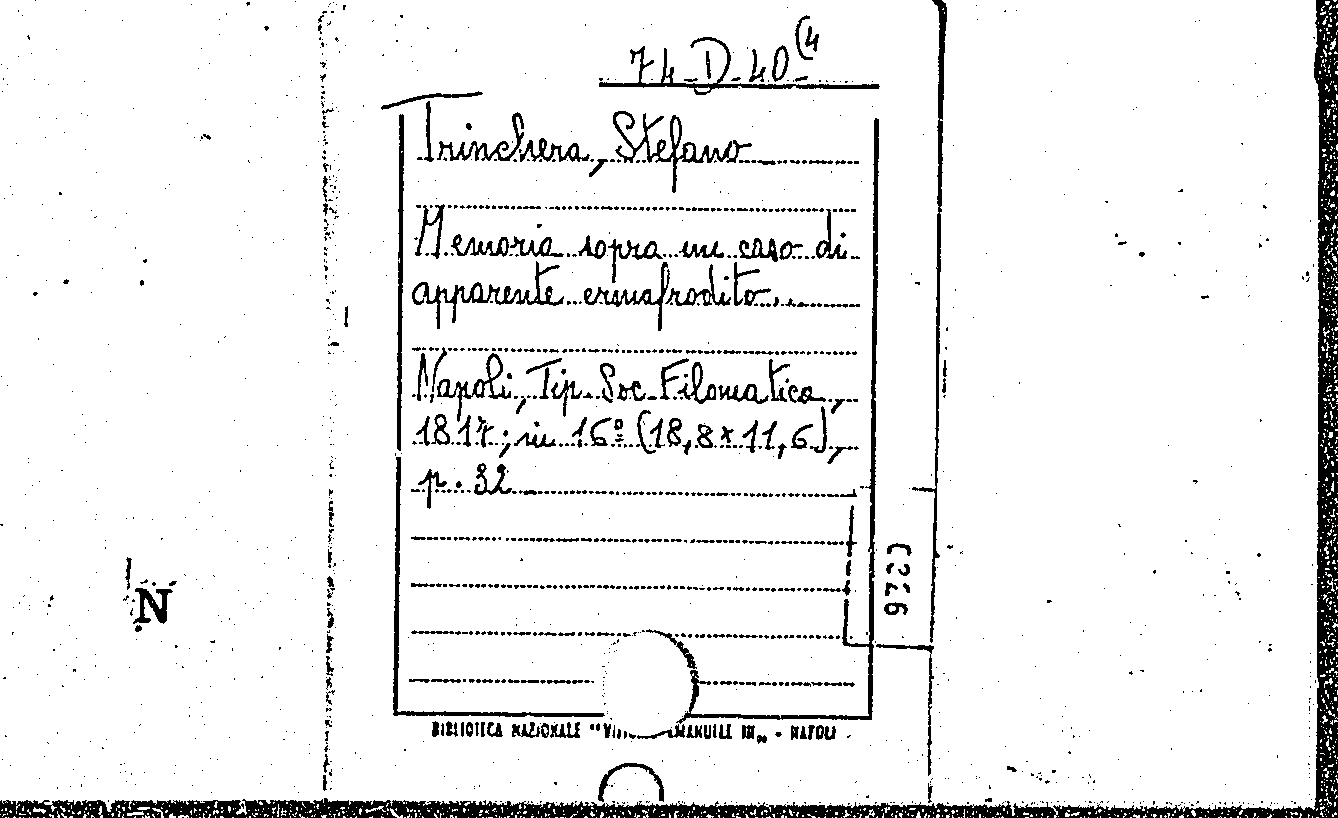 74-D-40(4
Trinchera, Stefano
Memoria sopra un caso di
apparente ermafrodito...
Napoli, Tip. Soc. Filomatica,
1817; in 16º (18,8×11,6),
p. 32
N
BIBLIOTECA NAZIONALE "VITT EMANUELE III„ - NAPOLI